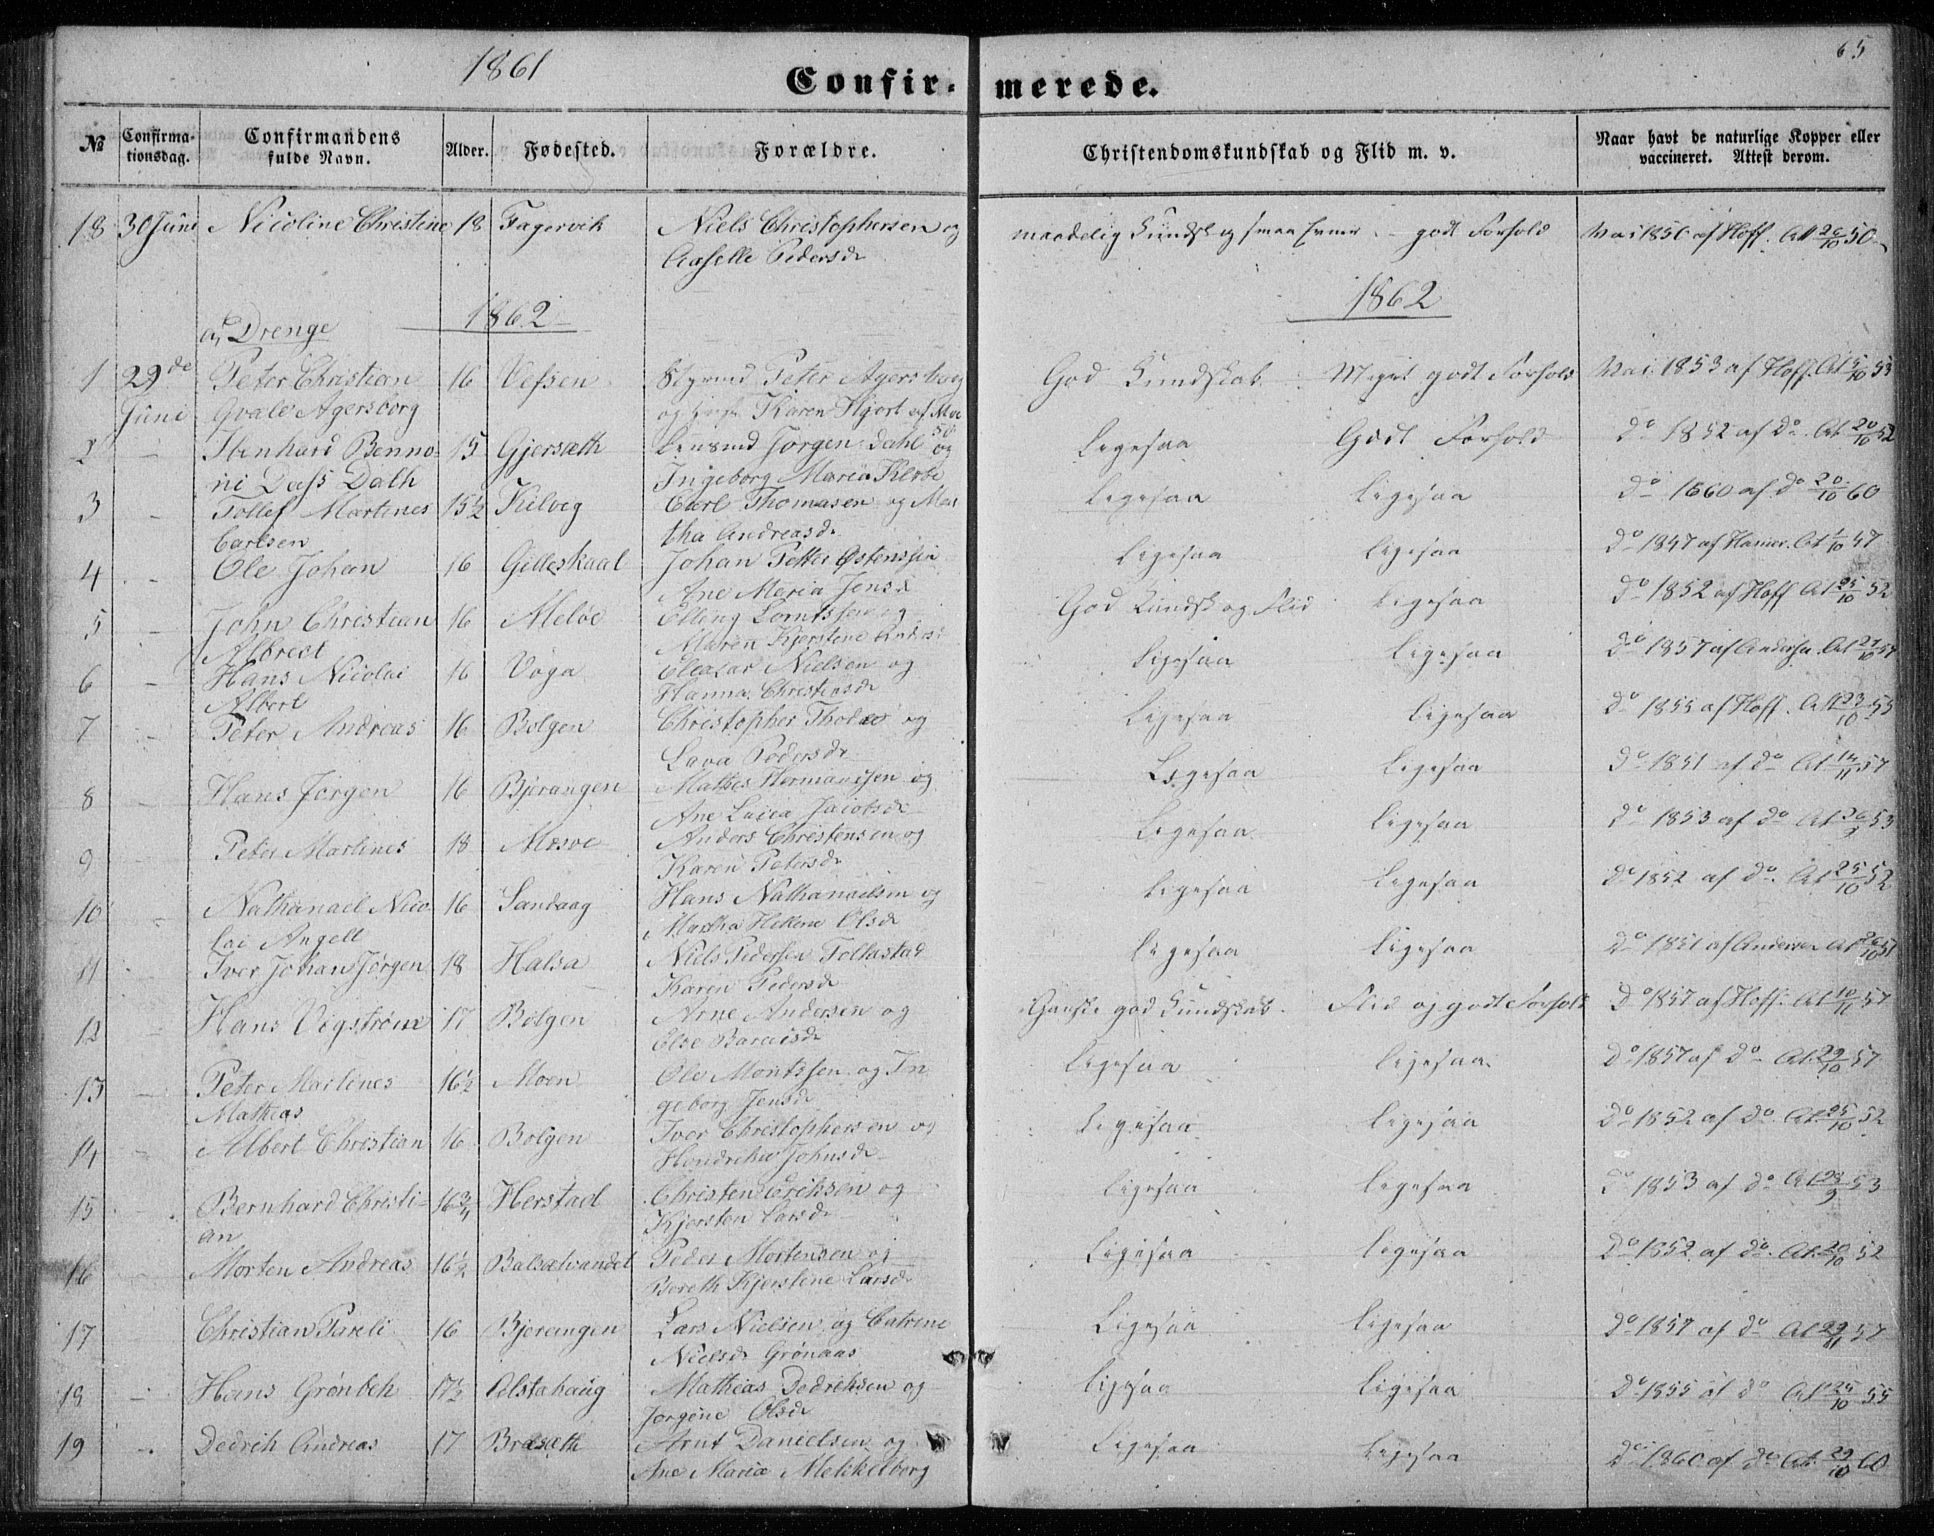 1861
65
Confir- merede.
№ Confirma-tionsdag. Confirmandens fulde Navn. Alder. Fødested. Forældre. Christendomskundskab og Flid m. v. Naar havt de naturlige Kopper eller vaccineret. Attest derom.
18 30 Juni Nicoline Christine 18 Fagervik Niels Christophersen og maadelig Kundsk og smaa Evner - godt Forhold Mai 1850 af Hoff. Att 20/10 50
Pedersd
1862 1862
a, Drenge
1 29de Peter Christian 16 Vefsen Peter Agersborg God Kundskab Meget godt Forhold Mai 1853 af Hoff. At 5/10 53
Juni Qvale Agersborg og Karen Hjort
2 - Benno- 15 Gjersæth Lensmd Jørgen Dahl og Ligesaa Godt Forhold do 1852 af do. At 20/10 52
ni Dass Dath Ingeborg Maria
3 - Tollef Martines 15½ Kilvig Carl Thomasen og Mar Ligesaa Ligesaa do 1860 af do 20/10 60
Carlsen tha Andreasd.
4 - Ole Johan 16 Gilleskaal Johan Petter Østenssen Ligesaa Ligesaa do 1847 af Hamer. At 1/10 47
Ane Meria Jensd
5 - John Christian 16 Meløe Elling Lorntssen og God Kundsk og Flid Ligesaa do 1852 af Hoff At 25/10 52
Albrect Maren Kjerstine Andersd
6 - Hans Nicolai 16 Vaga Eleazar Nielsen og Ligesaa Ligesaa do 1857 af Andersen. At 27/10 57
Albert Hanna Christensd
7 - Peter Andreas 16 Bolgen Christopher og Ligesaa Ligesaa do 1855 af Hoff. Att 23/10 55
Pedersd
8 - Hans Jørgen 16 Bjerangen Mathis Hermanssen og Ligesaa Ligesaa do 1851 af do At 14/11 57
Ane Jacobsd
9 Peter Martines 18 Mesøe Anders Christensen og Ligesaa Ligesaa do 1853 af do At 26/9 53
Karen Petersd
10 - Nathanael Nico 16 Sandaag Hans Nathanaelsen og Ligesaa Ligesaa do 1852 af do. At 25/10 52
lai Angell Martha Hellena Olsd
11 Iver Johan Jørgen 18 Halsa Niels Pedersen Tollastad Ligesaa Ligesaa do 1851 af Andersen At 26/10 51
Karen Pedersd
12 - Hans Vigstrøm 17 Bolgen Arne Andersen og Ganske god Kundskab. Flid og godt Forhold do 1857 af Hoff. At 10/10 57
Else
13 - Peter Martines 16½ Moen Ole Montssen og In Ligesaa Ligesaa. do 1857 af do At 29/10 57
Mathias geborg Jensd
14 - Albert Christian 16 Bolgen Iver Christophersen og Ligesaa Ligesaa do 1852 af do. At 25/10 52
Hendrikke Johnsd
15 - Bernhard Christi- 16¾ Herstad Christen Eriksen og Ligesaa Ligesaa do 1853 af do At 28/9 53
an Kjersten Larsd
16 - Morten Andreas 16½ Balsalvandet Peder Mortensen og Ligesaa Ligesaa do 1852 af do. At 20/10 52
Bereth Kjerstine Larsd
17 Christian Pareli 16 Bjerangen Lars Nielsen og Catrine Ligesaa Ligesaa do 1857 af do At 29/11 57
Nielsd Grønaas
18 - Hans Grønbek 17½ Alstahaug Mathias Dedriksen og Ligesaa Ligesaa do 1855 af do At 25/10 55
Jørgine Olsd
19 - Dedrik Andreas 17 Bræsæth Arnt Danielsen og Ligesaa Ligesaa do 1860 af do At. 29/10 60
Ane Maria Mekkelborg